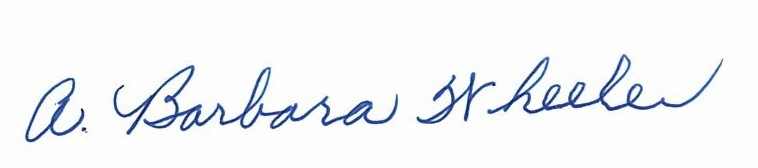 A. Barbara Wheeler